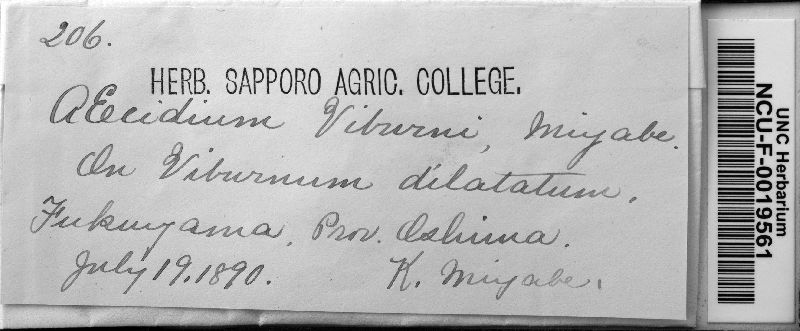 206.
HERB. SAPPORO AGRIC. COLLEGE.
Æcidium Viburni, Miyabe.
On Viburnum dilatatum.
Fukuyama, Prov. Oshima.
July 19. 1890. K. Miyabe.
UNC Herbarium
NCU-F-0019561